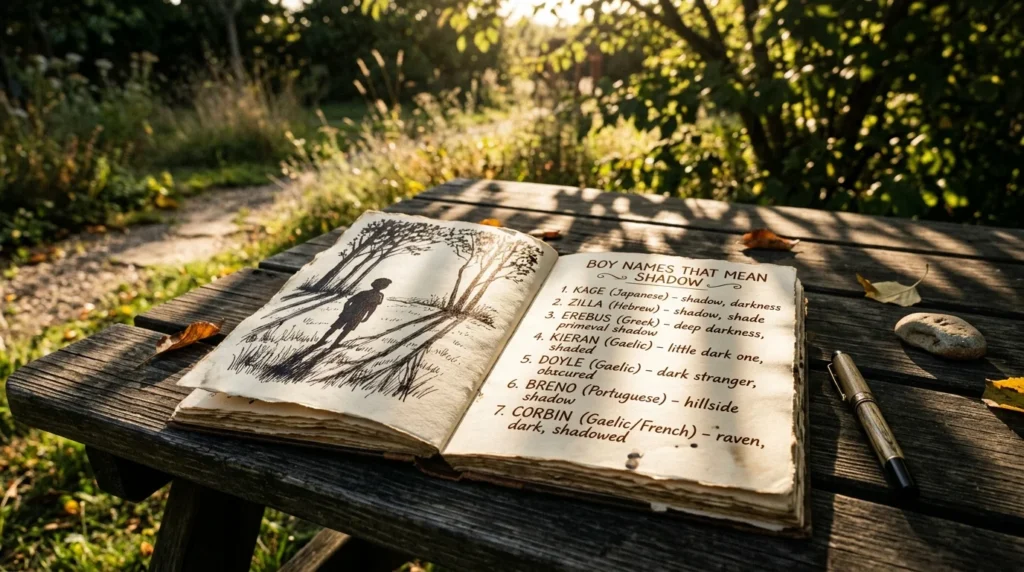 BOY NAMES THAT MEAN
SHADOW
1. KAGE (Japanese) – shadow, darkness
2. ZILLA (Hebrew) – shadow, shade
3. EREBUS (Greek) – deep darkness,
primeval shadow
4. KIERAN (Gaelic) – little dark one,
shaded
5. DOYLE (Gaelic) – dark stranger,
obxcured
6. BRENO (Portuguese) – hillside
shadow
7. CORBIN (Gaelic/French) – raven,
dark, shadowed